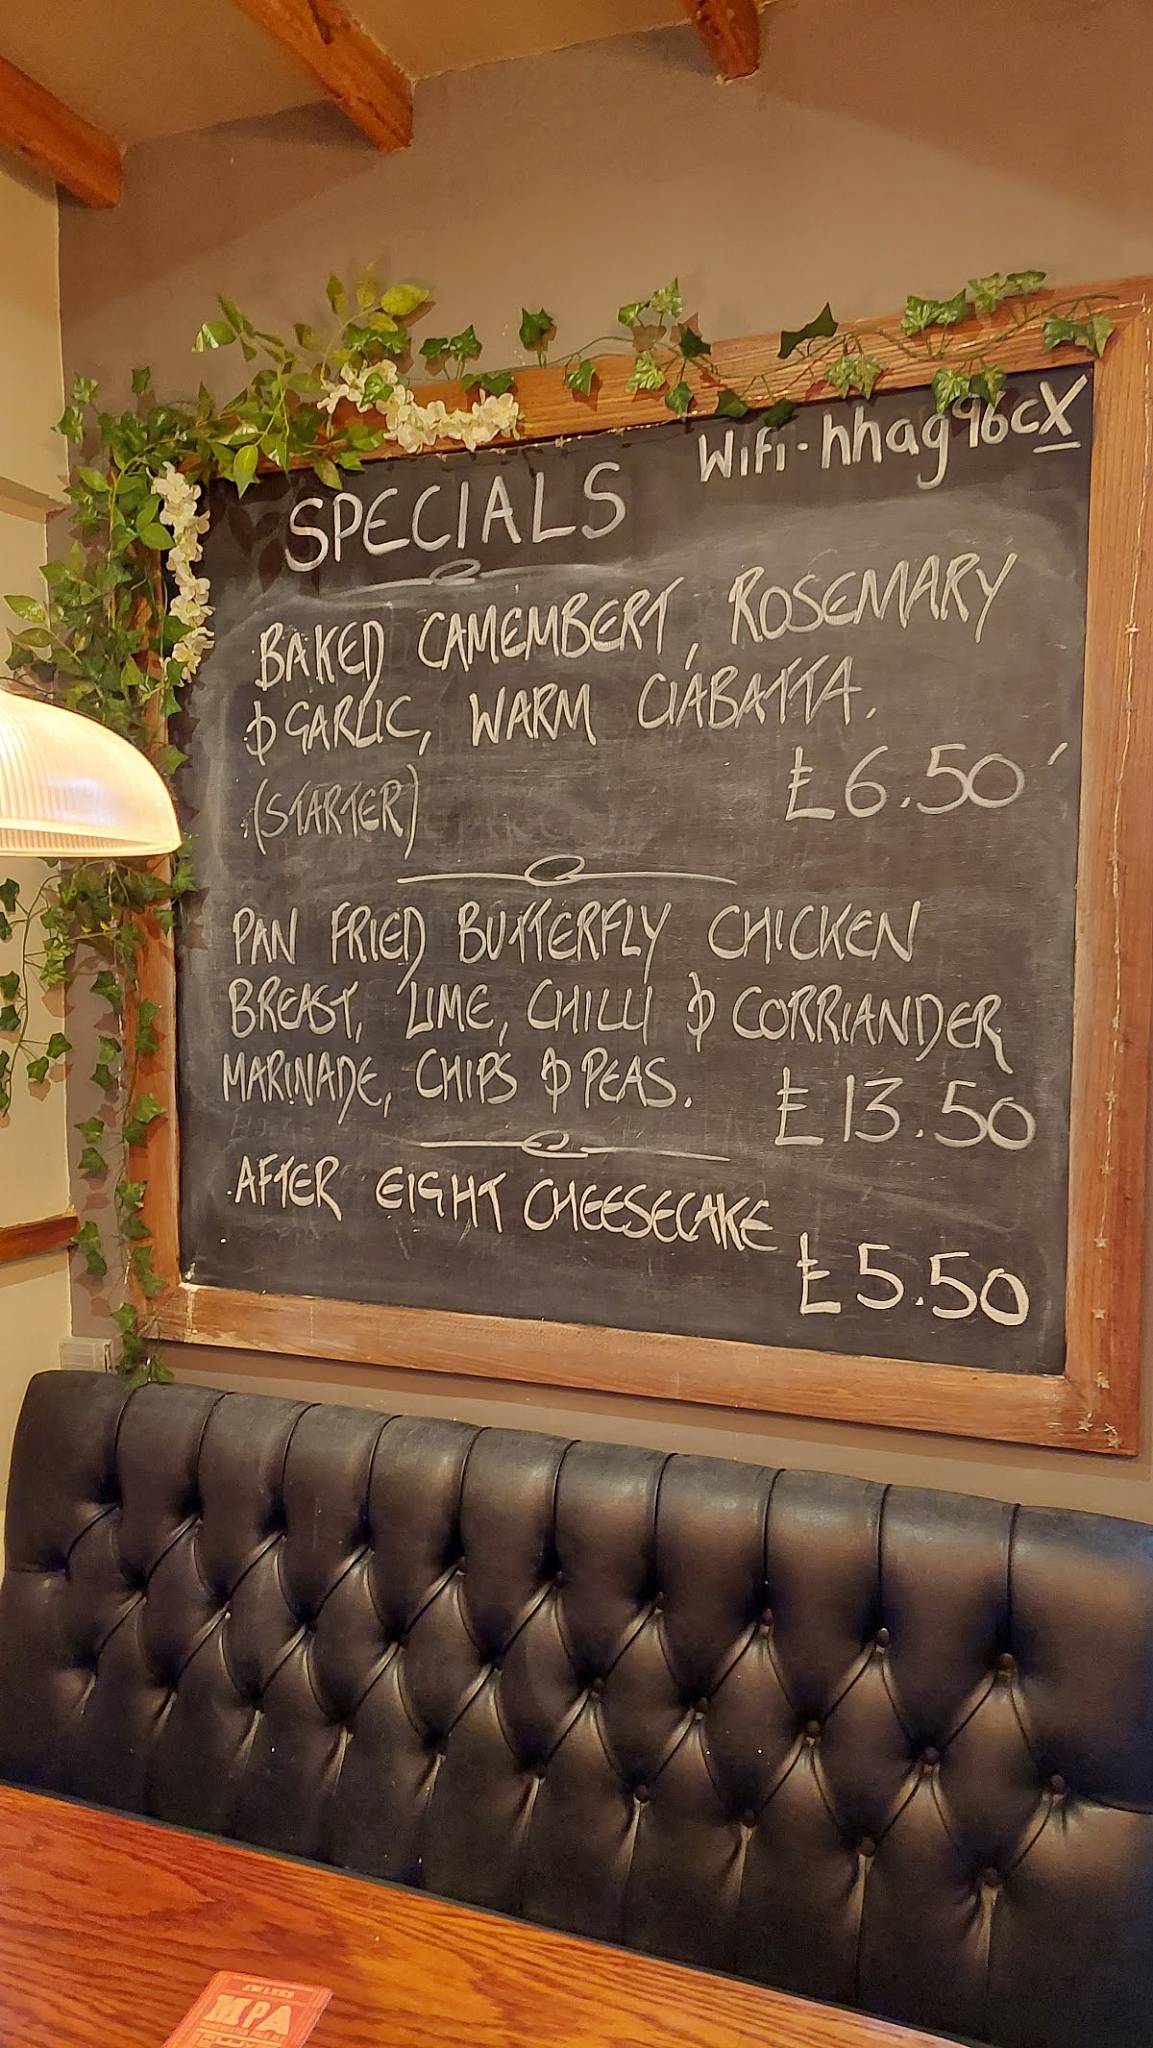 Wifi - hhag96cX
SPECIALS
BAKED CAMEMBERT, ROSEMARY
& GARLIC, WARM CIABATTA.
(STARTER) £6.50
PAN FRIED BUTTERFLY CHICKEN
BREAST, LIME, CHILLI & CORRIANDER
MARINADE, CHIPS & PEAS. £13.50
AFTER EIGHT CHEESECAKE
£5.50
MPA